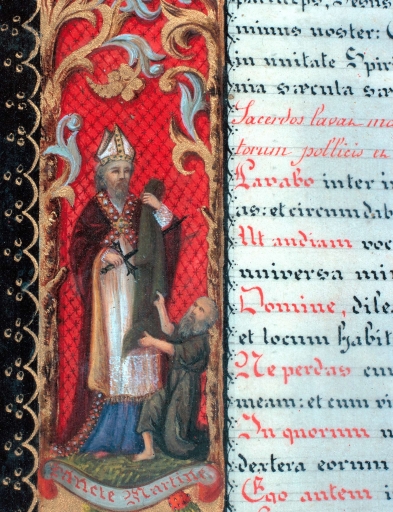 minus noster:
in unitate Spir
nia sæcula sæ
Sacerdos lavat ma
torum pollicis et
Lavabo inter i
as: et circumdab
Ut audiam voc
universa mir
Domine, dile
et locum habit
Ne perdas cum
meam: et cum vi
In quorum
dextera eorum
Ego autem i
Sancte Martine